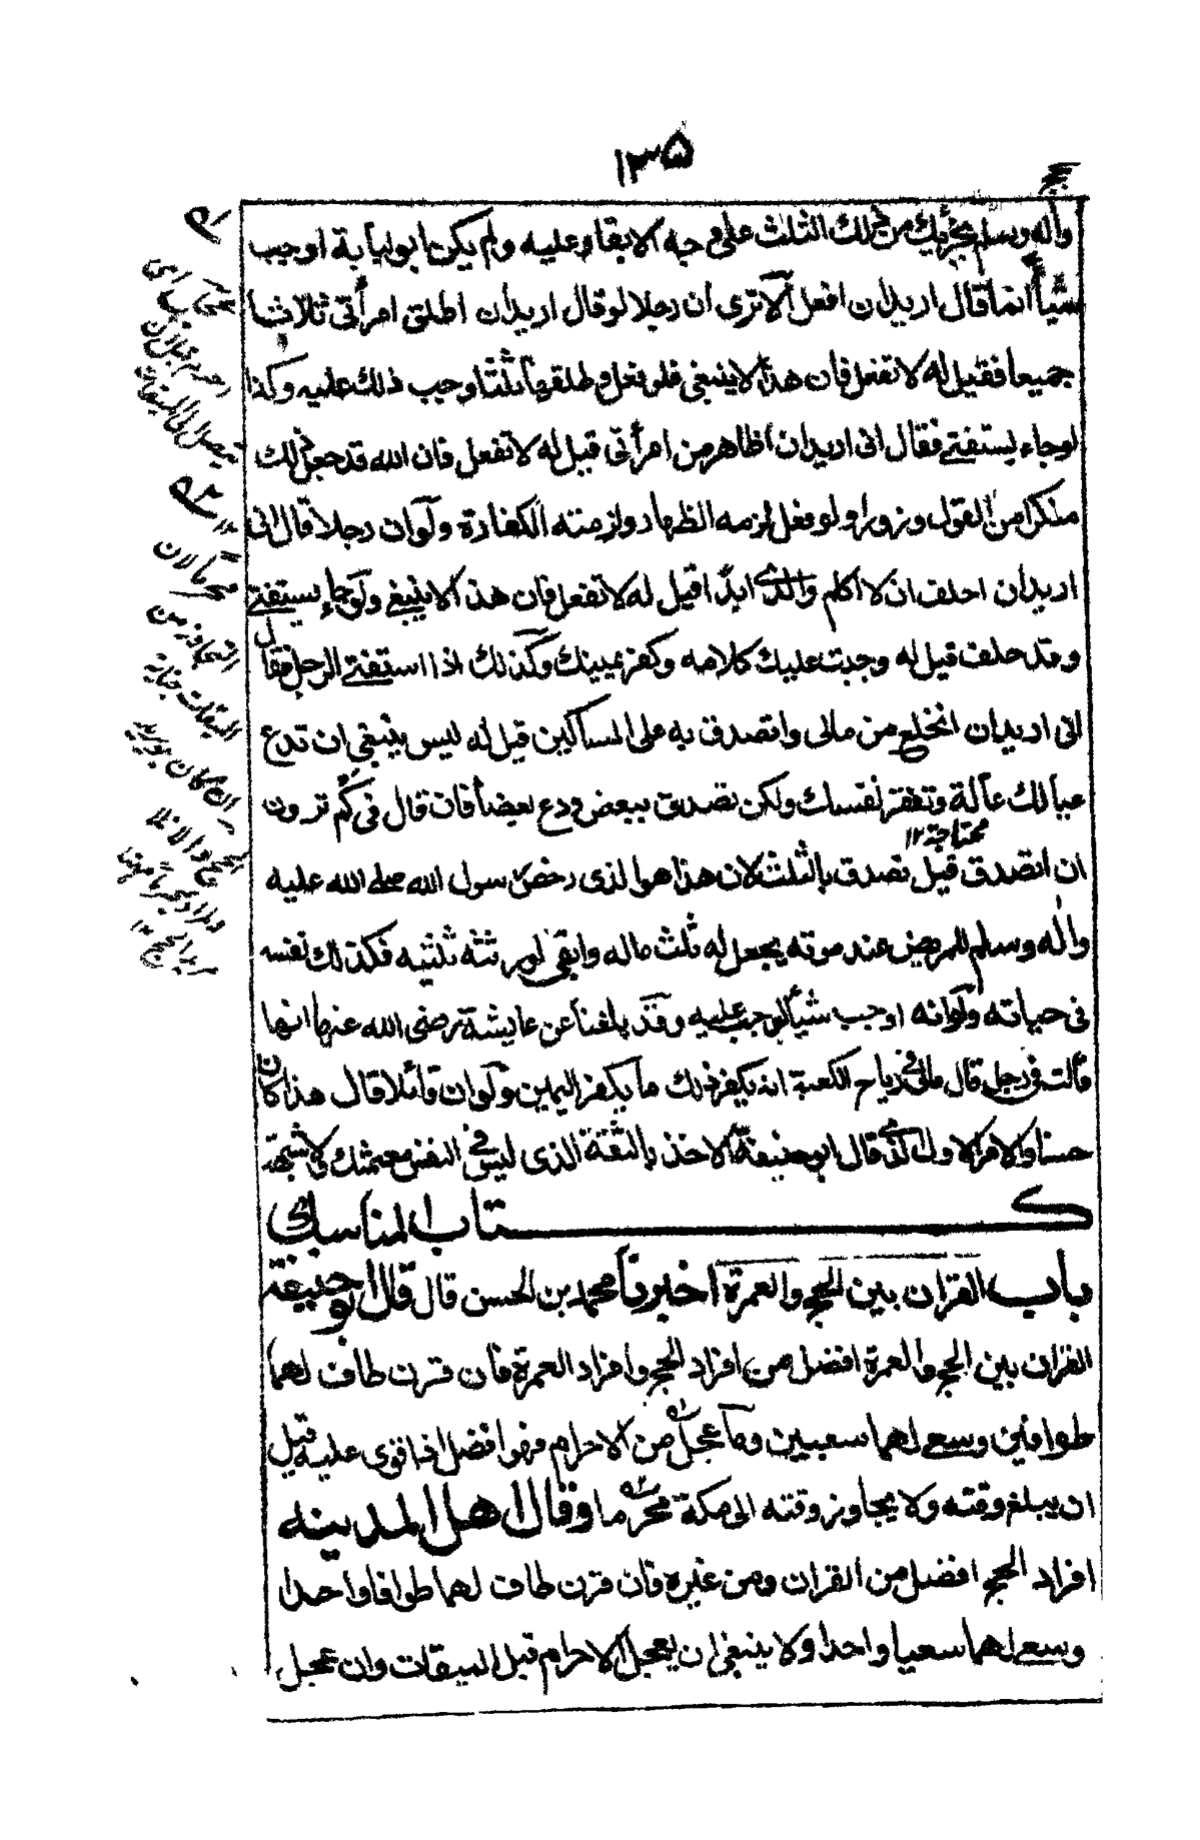 ١٣٥
حج
وآله وسلم يجزيك من ذلك الثلث على وجه الابقاء عليه ولم يكن ابو لبابة اوجب
شيأ انما قال اريد ان افعل ألا ترى ان رجلا لو قال اريد ان اطلق امرأتى ثلاثا
جميعا فقيل له لا تفعل فان هذا لا ينبغى فلو فعل وطلقها ثلثا وجب ذلك عليه وكذا
لو جاء يستفتى فقال انى اريد ان اظاهر من امرأتى قيل له لا تفعل فان الله قد جعل ذلك
منكرا من القول وزورا ولو فعل لزمه الظهار ولزمته الكفارة ولو ان رجلا قال انى
اريد ان احلف ان لا اكلم والدى ابدا قيل له لا تفعل فان هذا لا ينبغى ولو جاء يستفتى
وقد حلف قيل له وجبت عليك كلامه وكفر يمينك وكذلك اذا استفتى الرجل فقال
انى اريد ان انخلع من مالى واتصدق به على المساكين قيل له ليس ينبغى ان تدع
عيالك عالة وتفقر نفسك ولكن تصدق ببعض ودع بعضا فان قال فى كم ترون
محتاجة ١٢
ان اتصدق قيل تصدق بالثلث لان هذا هو الذى رخص رسول الله صلى الله عليه
وآله وسلم للمريض عند موته يجعل له ثلث ماله وابقى لورثته ثلثيه فكذلك نفسه
فى حياته ولو انه اوجب شيأ لوجب عليه وقد بلغنا عن عايشة رضى الله عنها انها
قالت فى رجل قال مالى فى رتاج الكعبة انه يكفر ذلك ما يكفر اليمين ولو ان قائلا قال هذا كان
حسنا والامر الاول كذى قال ابو حنيفة الاخذ بالثقة الذى ليس فى النفس معتمثك لا شبهة
كتاب المناسك
باب القران بين الحج والعمرة اخبرنا محمد بن الحسن قال قال ابو حنيفة
القران بين الحج والعمرة افضل من افراد الحج وافراد العمرة فان قرن طاف لهما
طوافين وسعى لهما سعيين وما عجل من الاحرام فهو افضل اذا قوى عليه قبل
ان يبلغ وقته ولا يجاوز وقته الى مكة محرما وقال اهل المدينه
افراد الحج افضل من القران ومن غيره فان قرن طاف لهما طوافا واحدا
وسعى لهما سعيا واحدا ولا ينبغى ان يعجل الاحرام قبل الميقات وان عجل
اى
احرم قبل ان
يصل الى الميقات
١٢
لان
التجاوز من
الميقات جناية
ان كان يريد